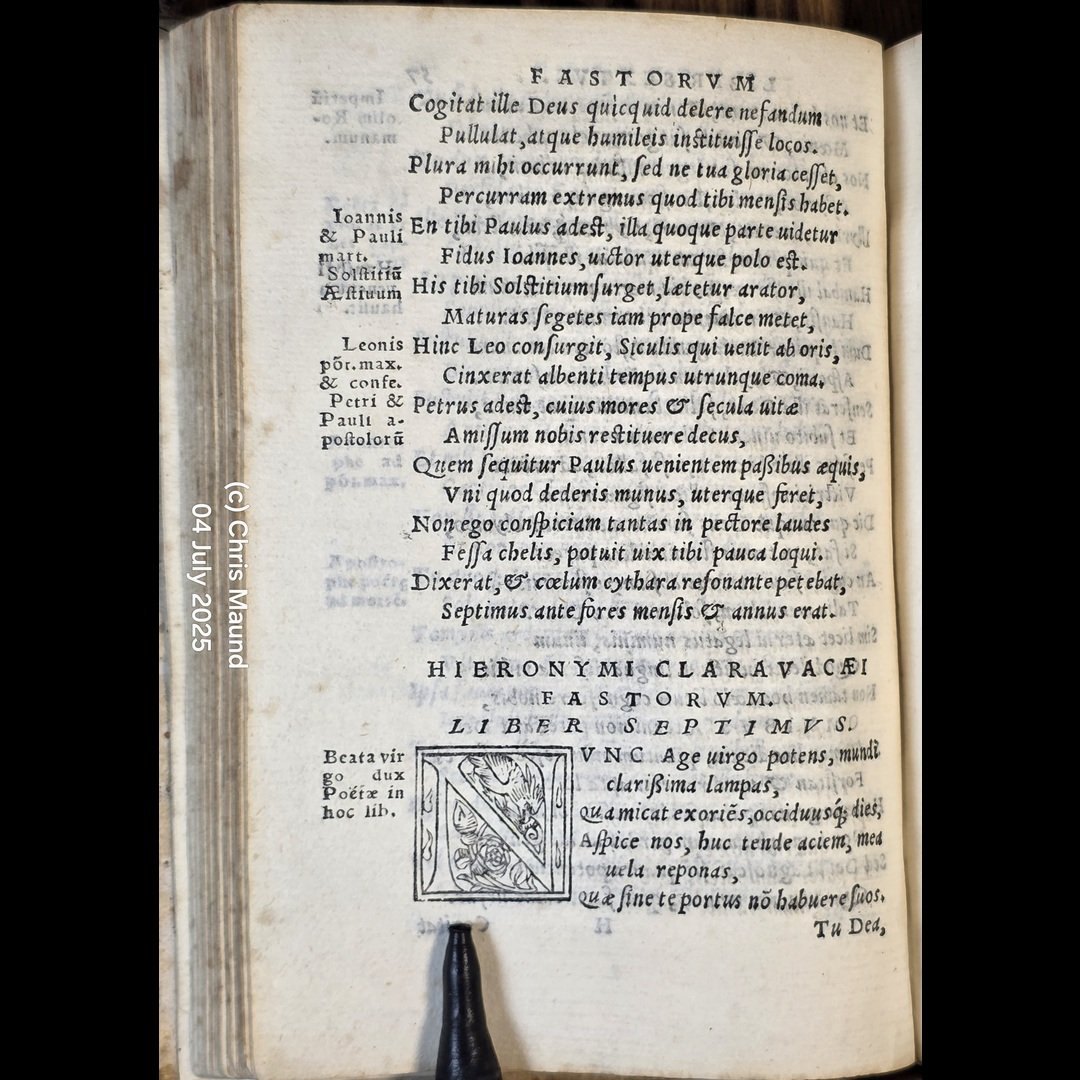 FASTORVM
Cogitat ille Deus quicquid delere nefandum
Pullulat, atque humileis instituisse locos.
Plura mihi occurrunt, sed ne tua gloria cesset,
Percurram extremus quod tibi mensis habet.
Ioannis
& Pauli
mart.
Solstitiũ
Æstiuum
En tibi Paulus adest, illa quoque parte uidetur
Fidus Ioannes, uictor uterque polo est.
His tibi Solstitium surget, lætetur arator,
Maturas segetes iam prope falce metet,
Leonis
põt. max.
& confe.
Petri &
Pauli a-
postolorũ
Hinc Leo consurgit, Siculis qui uenit ab oris,
Cinxerat albenti tempus utrunque coma.
Petrus adest, cuius mores & secula uitæ
Amissum nobis restituere decus,
Quem sequitur Paulus uenientem paßibus æquis,
Vni quod dederis munus, uterque feret,
Non ego conspiciam tantas in pectore laudes
Fessa chelis, potuit uix tibi pauca loqui.
Dixerat, & cœlum cythara resonante petebat,
Septimus ante fores mensis & annus erat.
HIERONYMI CLARAVACÆI
FASTORVM.
LIBER SEPTIMVS.
Beata vir
go dux
Poëtæ in
hoc lib.
NVNC Age uirgo potens, mundi
clarißima lampas,
Qua micat exoriẽs, occiduusq́; dies,
Aspice nos, huc tende aciem, mea
uela reponas,
Quæ sine te portus nõ habuere suos.
Tu Dea,
(c) Chris Maund
04 July 2025